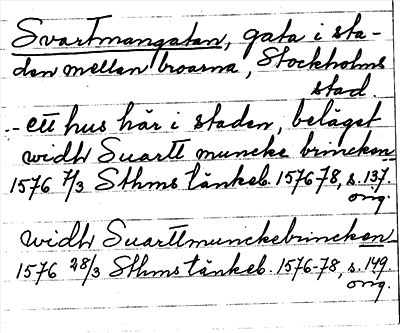 Svartmangatan, gata i sta-
den mellan broarna, Stockholms
stad.
-- ett hus här i staden, beläget
widh Suartt muncke brincken
1576 7/3 Sthms tänkeb. 1576-78, s. 137.
orig.
widh Suarttmunckebrincken
1576 28/3 Sthms tänkeb. 1576-78, s. 149.
orig.